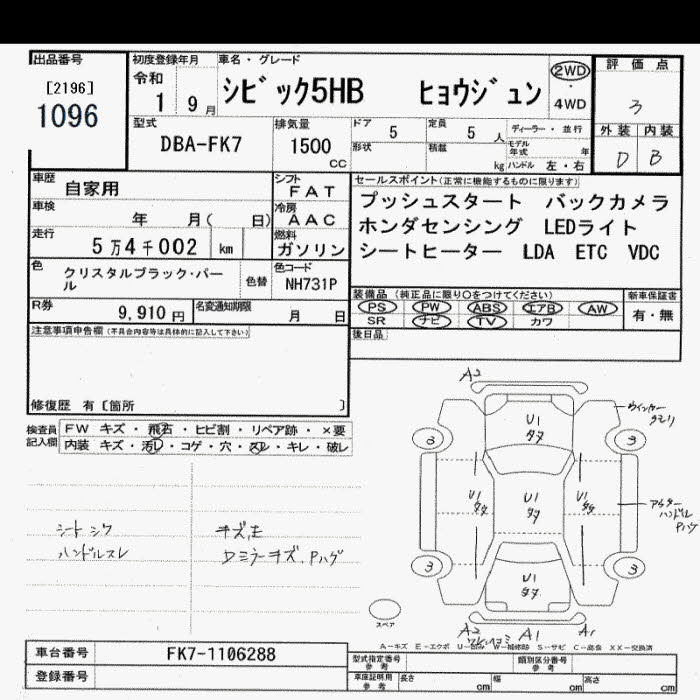 出品番号
[2196]
1096
初度登録年月
令和
1 9月
車名・グレード
シビック5HB ヒョウジュン
2WD
・
4WD
評価点
3
外装 内装
D B
型式
DBA-FK7
排気量
1500
CC
ドア
5
定員
5 人
形状
積載
kg
ディーラー・並行
モデル
年式 年
ハンドル 左・右
車歴
自家用
シフト
FAT
車検
年 月( 日)
冷房
AAC
走行
5万4千002 km
燃料
ガソリン
色
クリスタルブラック・パー
ル
色替
色コード
NH731P
R券
9,910円
名変通知期限
月 日
セールスポイント(正常に機能するものに限ります)
プッシュスタート バックカメラ
ホンダセンシング LEDライト
シートヒーター LDA ETC VDC
装備品(純正品に限り○をつけてください)
PS PW ABS エアB AW
SR ナビ TV カワ
新車保証書
有・無
後日品
注意事項申告欄(不具合内容等は具体的に記入して下さい)
修復歴 有〔箇所 〕
検査員
記入欄
FW キズ・飛石・ヒビ割・リペア跡・×要
内装 キズ・汚レ・コゲ・穴・スレ・キレ・破レ
シート シワ
ハンドルスレ
キズ,E
Dミラーキズ.Pハゲ
A2
U1
タタ
ウインカー
3
3
U1
タタ
U1
タタ
U1
タタ
アウター
ハンドル
Pハゲ
3
3
U1
タタ
スペア
A2
A1
A1
A-キズ E-エクボ U-凹み W-補修跡 S-サビ C-腐食 XX-交換済
車台番号
FK7-1106288
登録番号
型式指定番号
参考
類別区分番号
参考
車庫証明用
参考
長さ cm
幅 cm
高さ cm